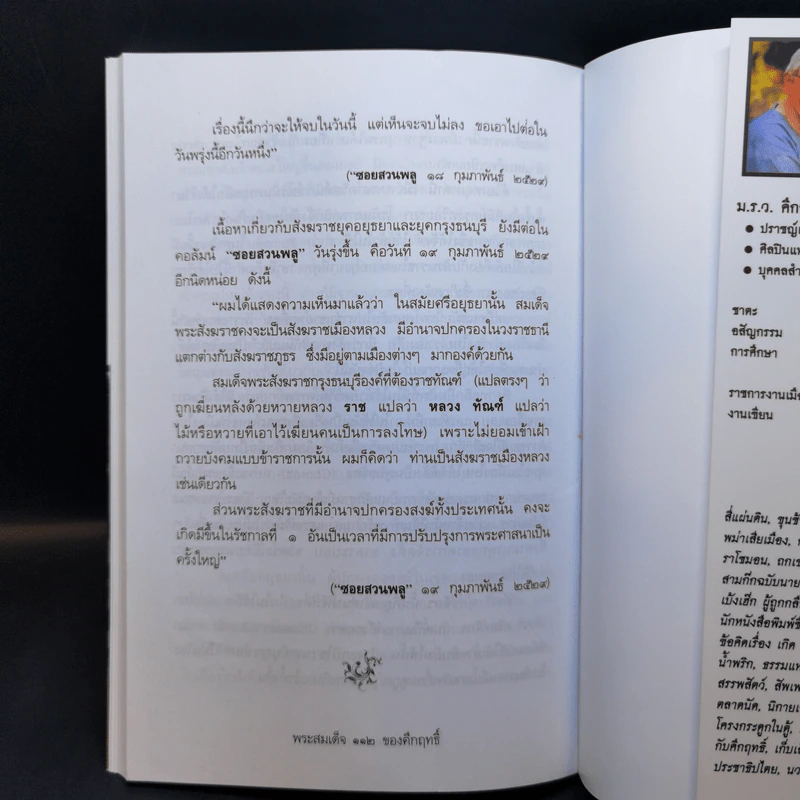 เรื่องนี้นึกว่าจะให้จบในวันนี้ แต่เห็นจะจบไม่ลง ขอเอาไปต่อใน
วันพรุ่งนี้อีกวันหนึ่ง”
(“ซอยสวนพลู ๑๘ กุมภาพันธ์ ๒๕๒๙)
เนื้อหาเกี่ยวกับสังฆราชยุคอยุธยาและยุคกรุงธนบุรี ยังมีต่อใน
คอลัมน์ “ซอยสวนพลู” วันรุ่งขึ้น คือวันที่ ๑๙ กุมภาพันธ์ ๒๕๒๙
อีกนิดหน่อย ดังนี้
“ผมได้แสดงความเห็นมาแล้วว่า ในสมัยศรีอยุธยานั้น สมเด็จ
พระสังฆราชคงจะเป็นสังฆราชเมืองหลวง มีอำนาจปกครองในวงราชธานี
แตกต่างกับสังฆราชภูธร ซึ่งมีอยู่ตามเมืองต่างๆ มากองค์ด้วยกัน
สมเด็จพระสังฆราชกรุงธนบุรีองค์ที่ต้องราชทัณฑ์ (แปลตรงๆ ว่า
ถูกเฆี่ยนหลังด้วยหวายหลวง ราช แปลว่า หลวง ทัณฑ์ แปลว่า
ไม้หรือหวายที่เอาไว้เฆี่ยนคนเป็นการลงโทษ) เพราะไม่ยอมเข้าเฝ้า
ถวายบังคมแบบข้าราชการนั้น ผมก็คิดว่า ท่านเป็นสังฆราชเมืองหลวง
เช่นเดียวกัน
ส่วนพระสังฆราชที่มีอำนาจปกครองสงฆ์ทั้งประเทศนั้น คงจะ
เกิดมีขึ้นในรัชกาลที่ ๑ อันเป็นเวลาที่มีการปรับปรุงการพระศาสนาเป็น
ครั้งใหญ่”
(“ซอยสวนพลู” ๑๙ กุมภาพันธ์ ๒๕๒๙)
พระสมเด็จ ๑๑๒ ของคึกฤทธิ์
ม.ร.ว. คึก
● ปราชญ์
● ศิลปินแห
● บุคคลสำ
ชาตะ
อสัญกรรม
การศึกษา
ราชการงานเมือ
งานเขียน
สี่แผ่นดิน, ขุนช้
พม่าเสียเมือง,
ราโชมอน, ถกเข
สามก๊กฉบับนาย
เบ้งเฮ็ก ผู้ถูกกลื
นักหนังสือพิมพ์ชื่
ข้อคิดเรื่อง เกิด
น้ำพริก, ธรรมแห
สรรพสัตว์, สัพเพ
ตลาดนัด, นิกายเ
โครงกระดูกในตู้,
กับคึกฤทธิ์, เก็บเ
ประชาธิปไตย, นว